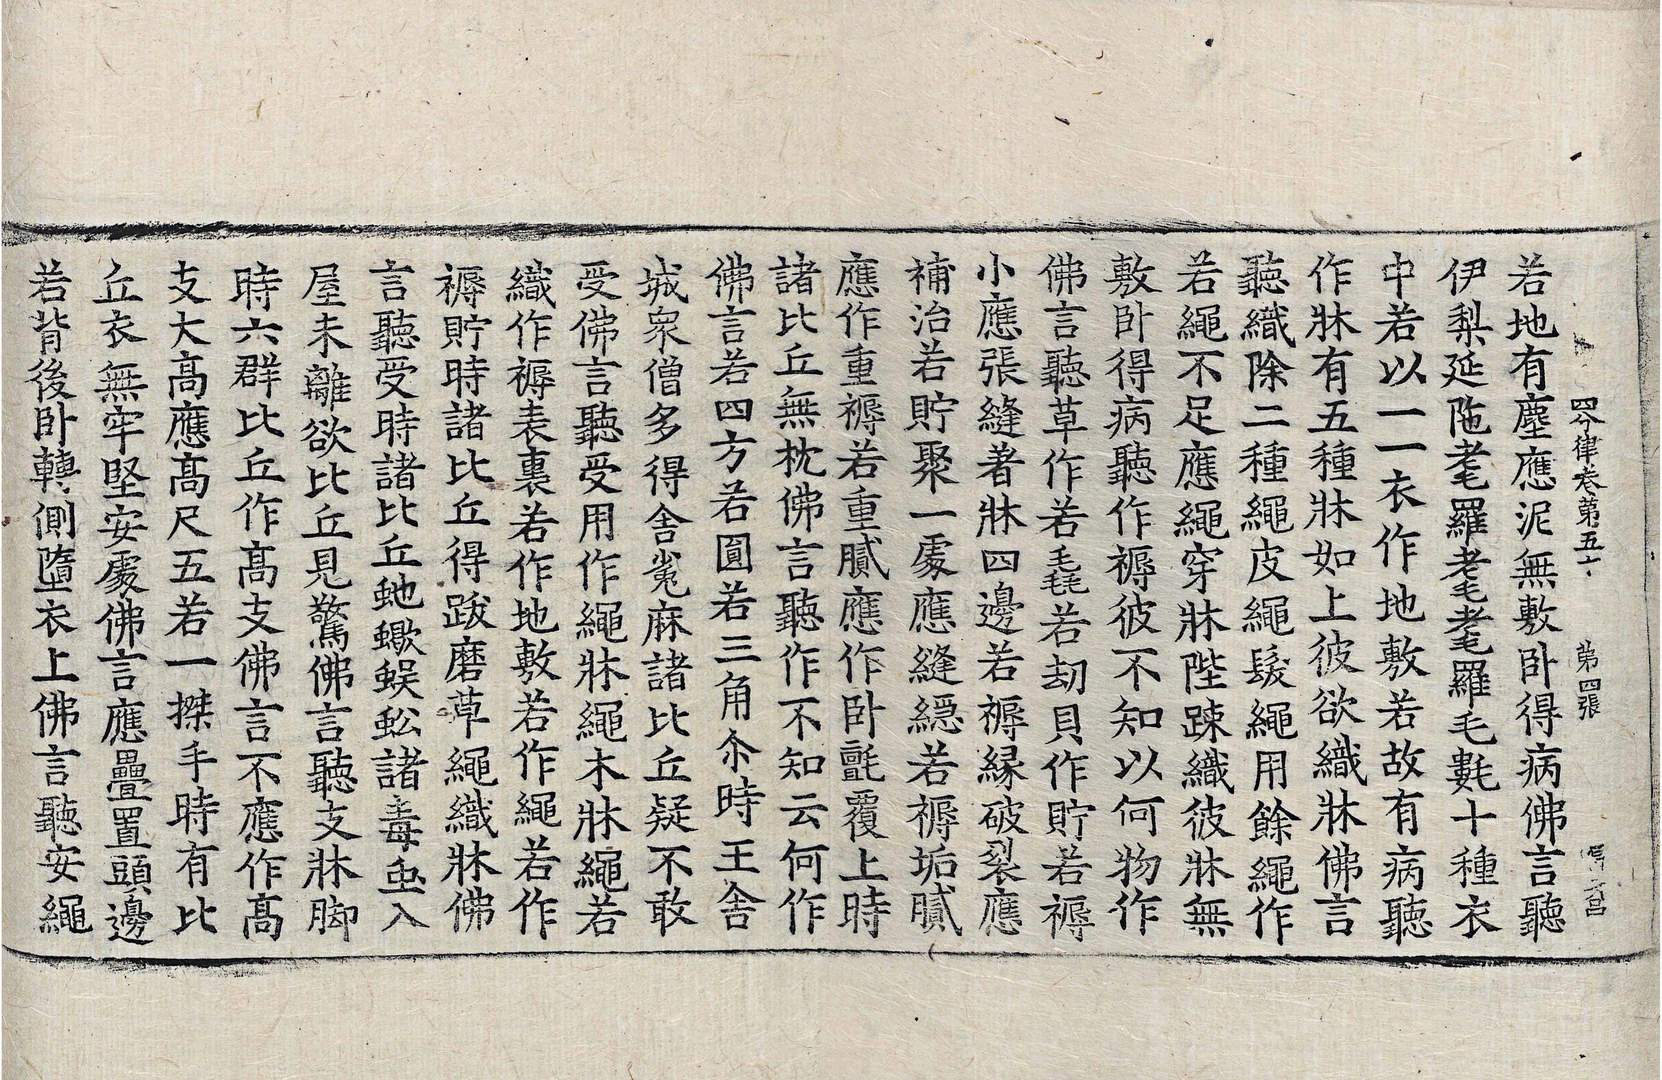 四分律卷第五十 第四張
若地有塵應泥無敷卧得病佛言聽
伊梨延陁耄羅耄耄羅毛氀十種衣
中若以一一衣作地敷若故有病聽
作牀有五種牀如上彼欲織牀佛言
聽織除二種繩皮繩髮繩用餘繩作
若繩不足應繩穿牀陛踈織彼牀無
敷卧得病聽作褥彼不知以何物作
佛言聽草作若毛毳若劫貝作貯若褥
小應張縫著牀四邊若褥縁破裂應
補治若貯聚一處應縫綖若褥垢膩
應作重褥若重膩應作卧氍覆上時
諸比丘無枕佛言聽作不知云何作
佛言若四方若圓若三角尒時王舍
城衆僧多得舍㝹麻諸比丘疑不敢
受佛言聽受用作繩牀繩木牀繩若
織作褥表裏若作地敷若作繩若作
褥貯時諸比丘得跋磨草繩織牀佛
言聽受時諸比丘虵蠍蜈蚣諸毒虫入
屋未離欲比丘見驚佛言聽支牀脚
時六群比丘作高支佛言不應作高
支大高應高尺五若一搩手時有比
丘衣無牢堅安處佛言應疊置頭邊
若背後卧轉側墮衣上佛言聽安繩